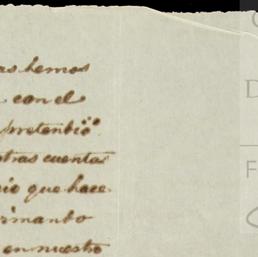 as hemos
con el
pretentió
otras cuentas
io que hace
rmando
en nuestro